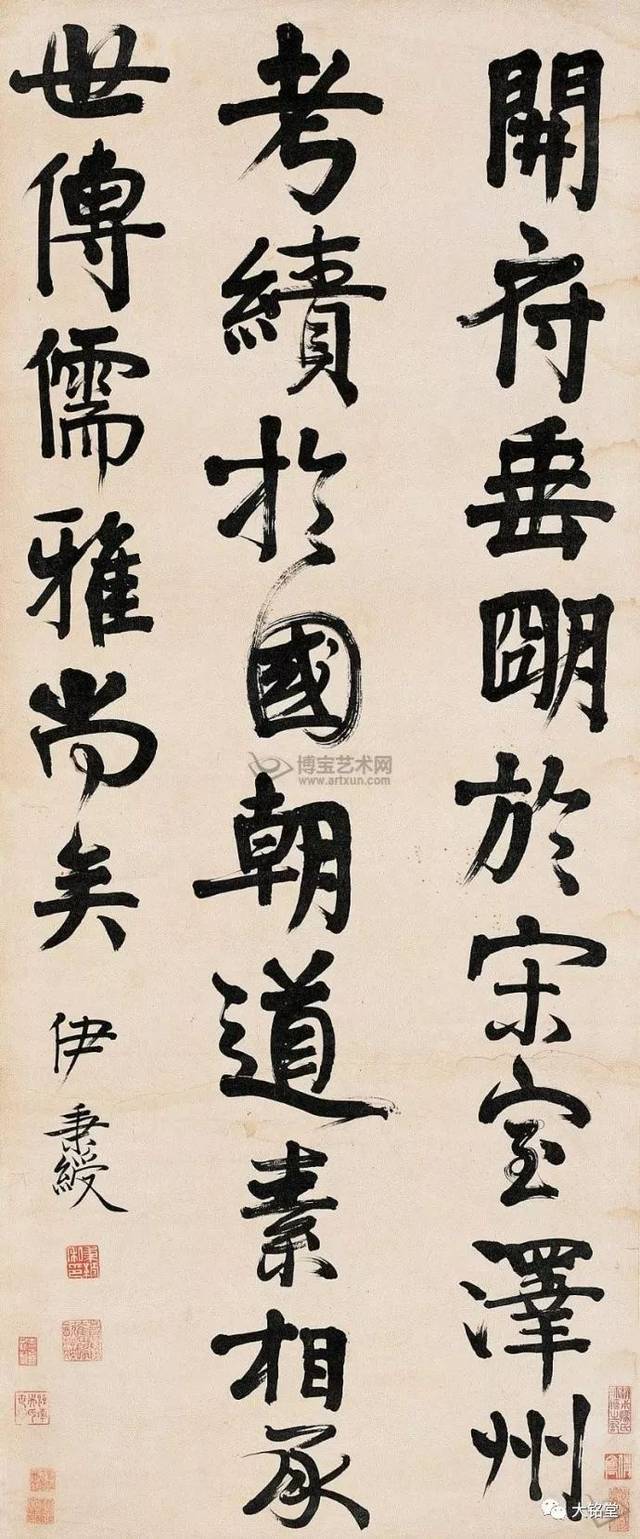 開府垂朙於宋室澤州
考績扵國朝道素相承
世傳儒雅尚矣
伊秉綬
博宝艺术网
www.artxun.com
大铭堂